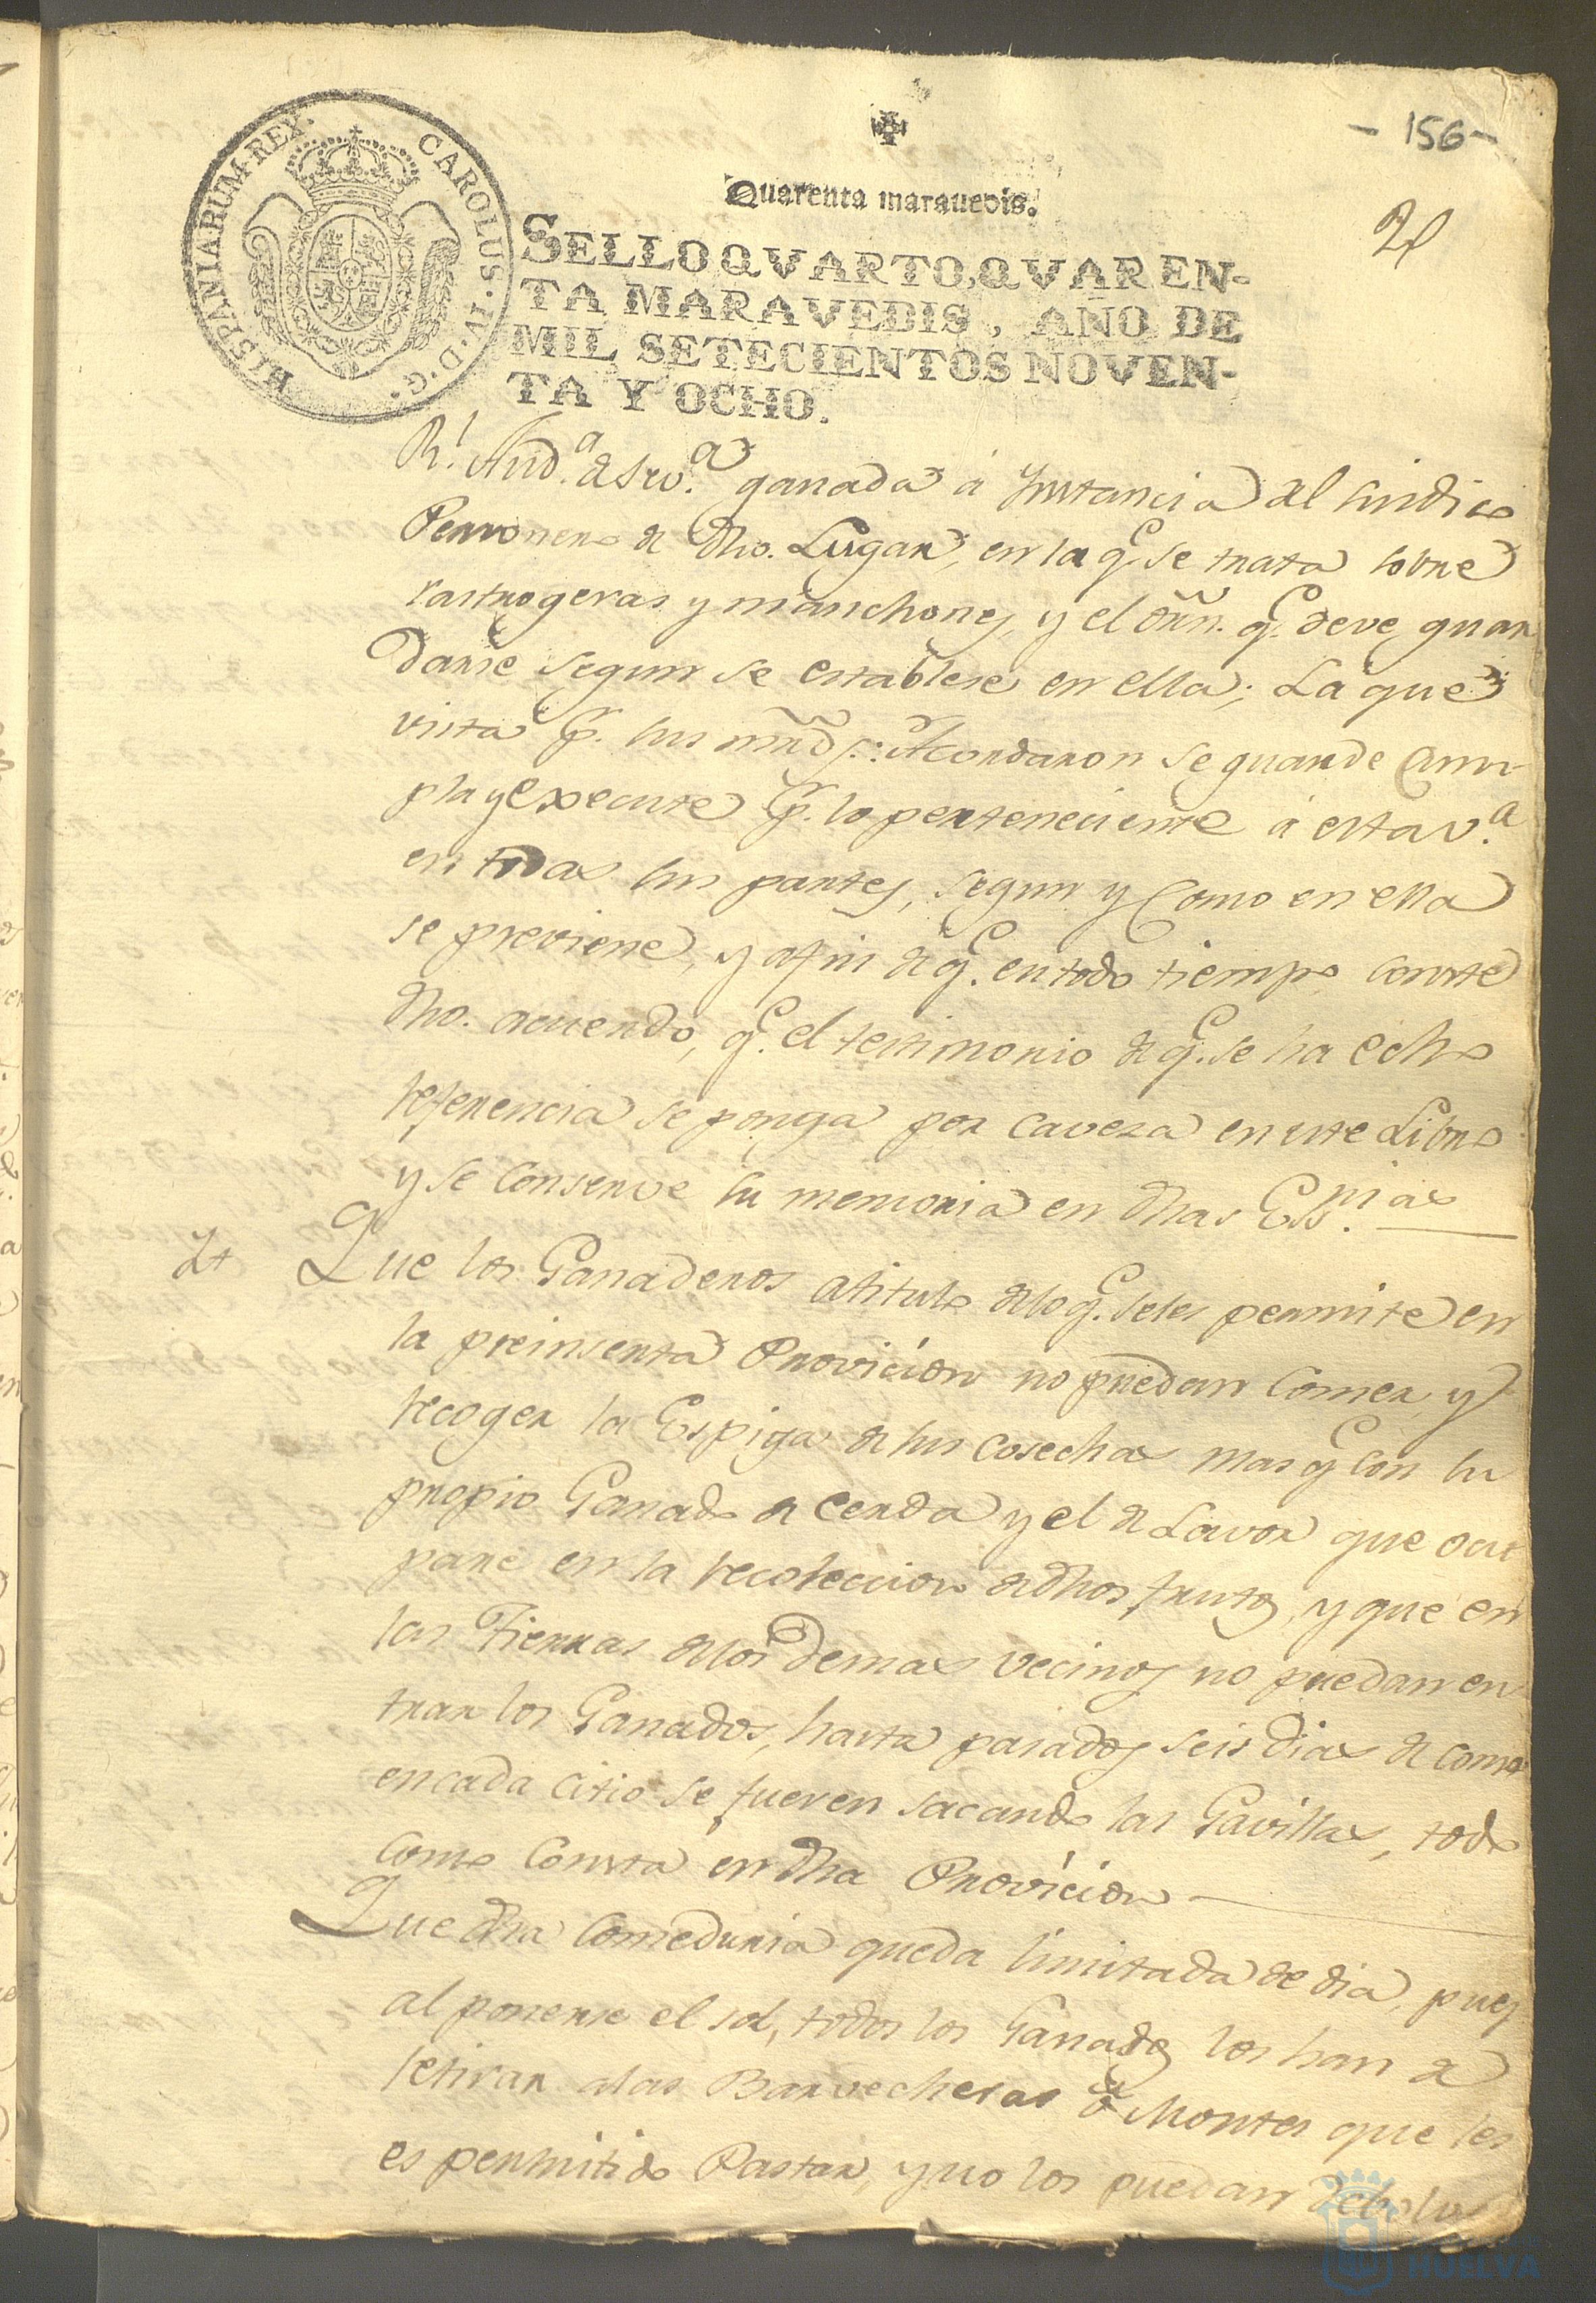 - 156 -
HISPANIARUM·REX· CAROLUS·IV·D·G·
Quarenta marauedis.
SELLO QVARTO, QVAREN-
TA MARAVEDIS, AÑO DE
MIL SETECIENTOS NOVEN-
TA Y OCHO.
Rl. Auda. de Seva. ganada á Ynstancia del sindico
Personero de dho. Lugar, en la qe. se trata sobre
rastrogeras y manchones, y el orñ. qe. deve guar
darse segun se establese en ella; La que
vista pr. sus mrds.: Acordaron se guarde Cum
pla y Execute pr. lo perteneciente á esta va.
en todas sus partes, segun y Como en ella
se previene, y afin de qe. en todo tiempo conste
dho. acuerdo, qe. el testimonio de qe. se ha echo
referencia se ponga por caveza en este Libro
y se conserve su memoria en dhas Essnias
Yt Que los Ganaderos atitulo delo qe. seles permite en
la preinserta Provicion no puedan Comer, y
recoger la Espiga de sus cosechas mas qe Con su
propio Ganado de cerda y el de Lavor que ocu
pare en la recoleccion de dhos frutos, y que en
las Tierras delos demas vecinos no puedan en
trar los Ganados, hasta pasados seis dias de como
en cada citio se fueren sacando las Gavillas, todo
como Consta en dha Provicion
Que dha Comeduria queda limitada de dia, pues
al ponerse el sol, todos los Ganados los han de
retirar alas Barvecheras ó Montes que les
es permitido Pastar, y no los puedan
HUELVA